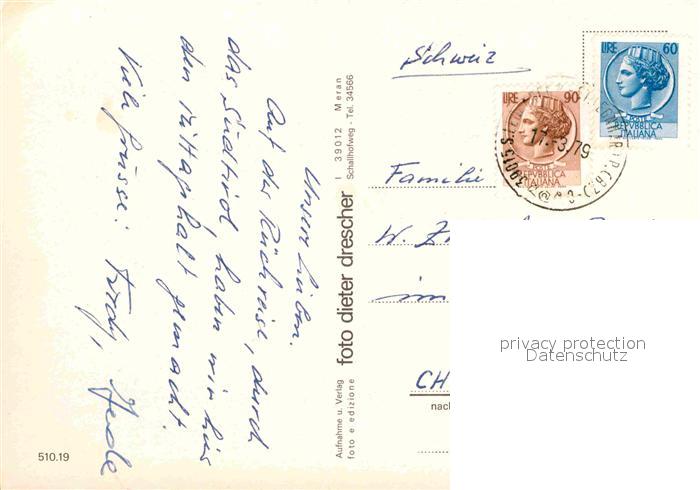 Unsere Lieben.
Auf der Rückreise, durch
das Südtirol, haben wir hier
den Mittagshalt gemacht.
Viele Grüsse:
510.19
Aufnahme u. Verlag
foto e edizione
foto dieter drescher
I 39012 Meran
Schallhofweg - Tel. 34566
Schweiz
Familie
W.
im
CH
nach
LIRE 90
REPVBBLICA
ITALIANA
LIRE 60
REPVBBLICA
ITALIANA
39015 S.
(BZ)
privacy protection
Datenschutz